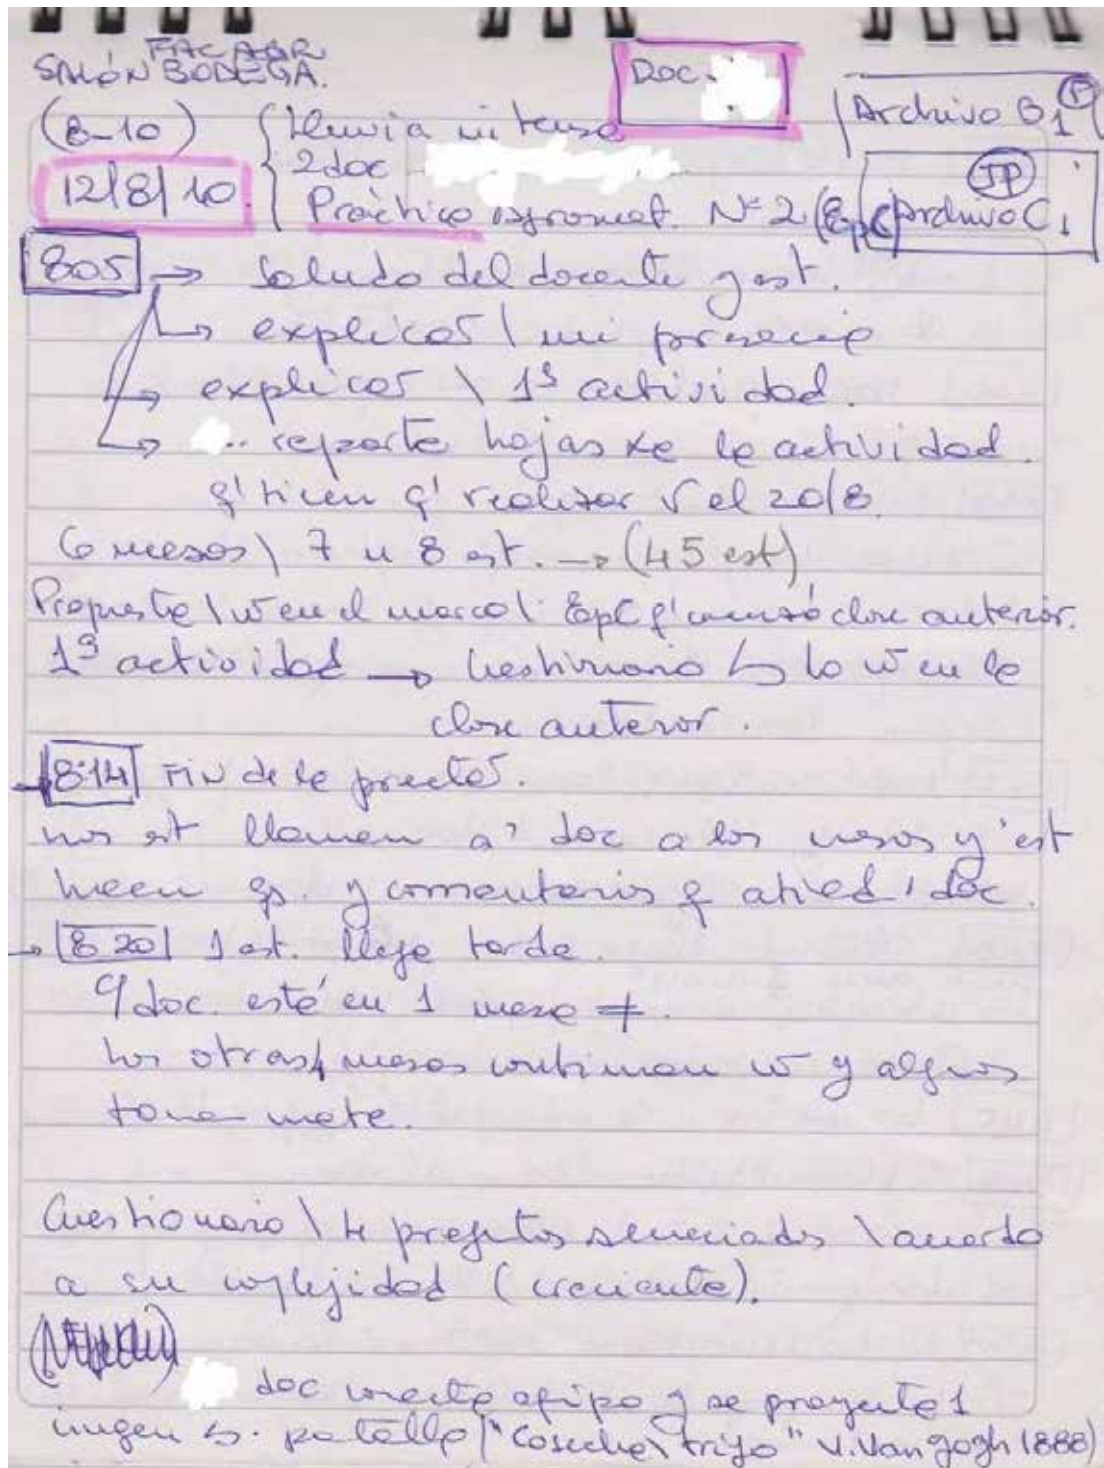 FAC AGR
SALÓN BODEGA.
Doc.
Archivo B1 (P)
(8-10) Lluvia intensa
12/8/10. 2 doc
(JP)
Práctico agromet. Nº 2 (EpC) Archivo C1
805 → Saludo del docente y est.
↳ explicas \ mi presencia
→ explicas \ 1ª actividad.
→ .. reparte hojas xe la actividad
q' tienen q' realizar el 20/8.
6 mesas \ 7 u 8 est. → (45 est)
Propuesta \ w en el marco \ EpC q' comenzó clase anterior.
1ª actividad → Cuestionario ↳ lo w en la
clase anterior.
→ 8:14 FIN de la
est llaman a' doc a los mesas y est
hacen y comentarios q doc.
→ 8 20 1 est. llega tarde.
doc. está en 1 mesa ≠.
Los otras 4 mesas continuan w y algunos
toman mate.
Cuestionario \ 4 preguntas secuenciadas \ acuerdo
a su complejidad (creciente).
doc conecta equipo y se proyecta 1
imagen pantalla ("Cosecha \ trigo" V. Van gogh 1888)